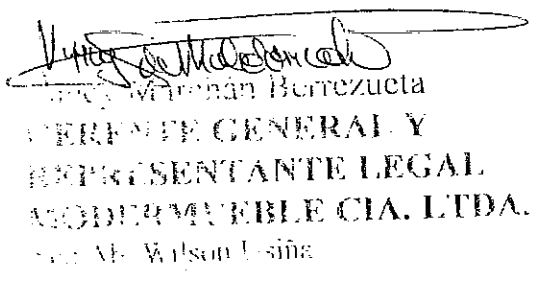 de Maldonado
Marchán Berrezueta
GERENTE GENERAL Y
REPRESENTANTE LEGAL
MODERMUEBLE CIA. LTDA.
Wilson Usiña